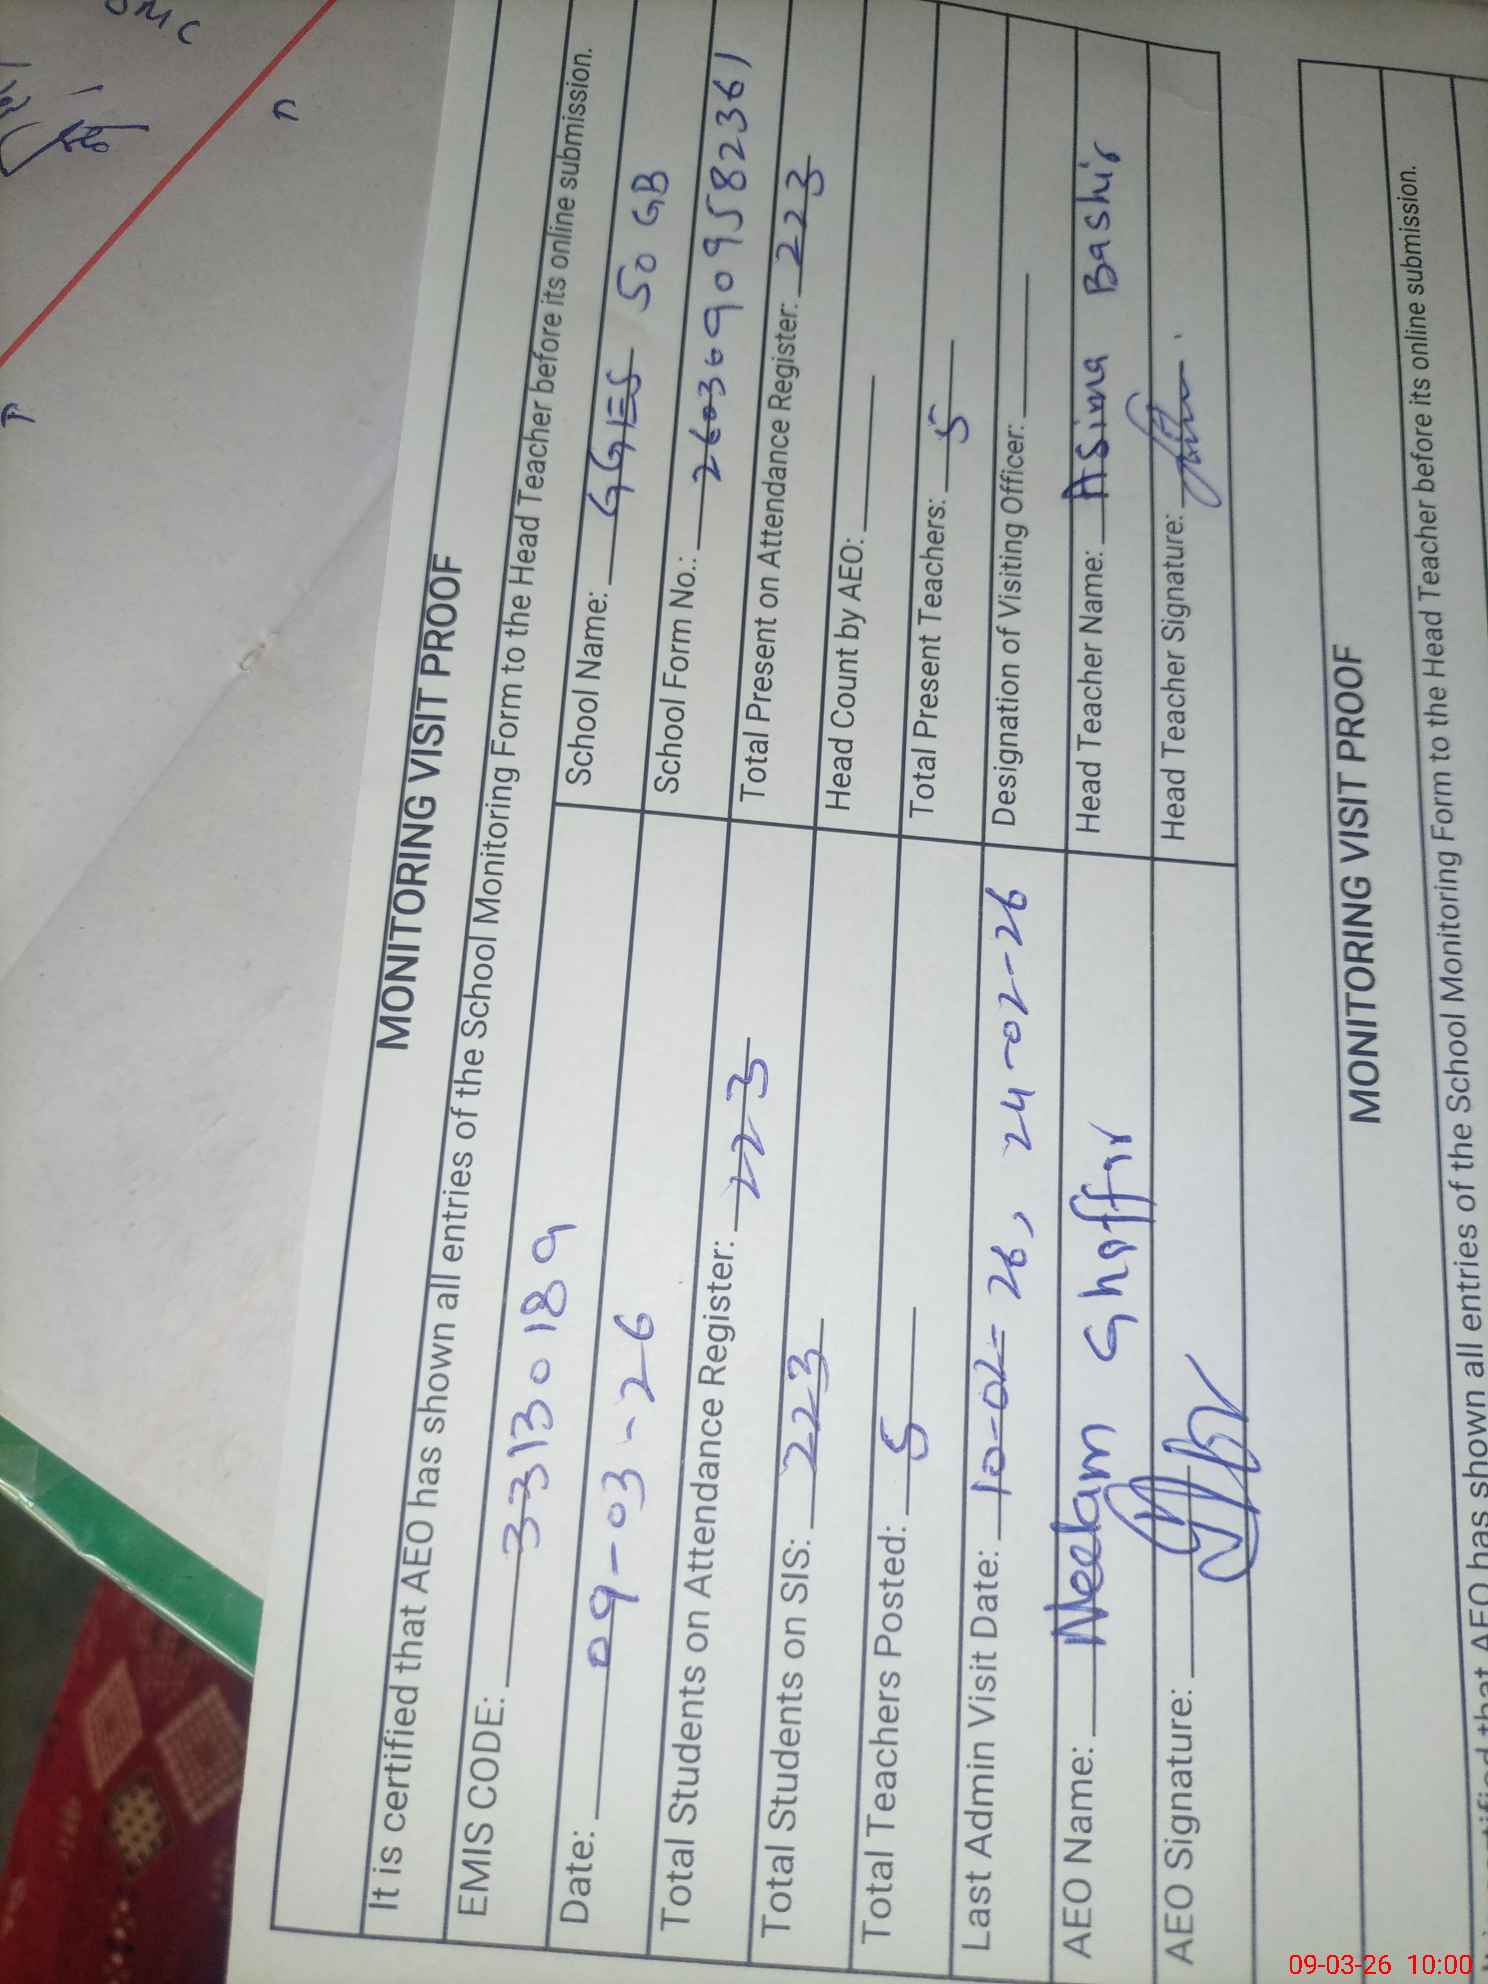 MONITORING VISIT PROOF
It is certified that AEO has shown all entries of the School Monitoring Form to the Head Teacher before its online submission.
EMIS CODE: 33130189 School Name: GGES 50 GB
Date: 09-03-26 School Form No.: 26036909582361
Total Students on Attendance Register: 223 Total Present on Attendance Register: 223
Total Students on SIS: 223 Head Count by AEO:
Total Teachers Posted: 5 Total Present Teachers: 5
Last Admin Visit Date: 10-02-26, 24-02-26 Designation of Visiting Officer:
AEO Name: Neelam Ghaffar Head Teacher Name: Asima Bashir
AEO Signature: Head Teacher Signature:
MONITORING VISIT PROOF
AEO has shown all entries of the School Monitoring Form to the Head Teacher before its online submission.
09-03-26 10:00